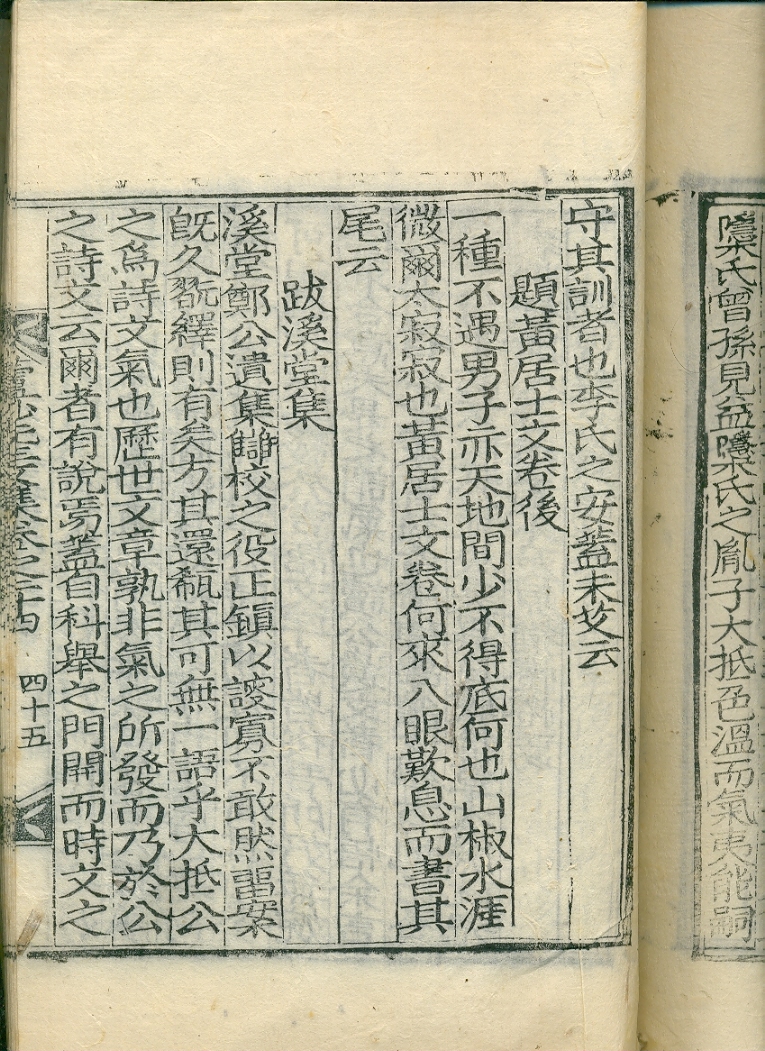 隱求氏曾孫見益隱求氏之胤子大抵色溫而氣夷能嗣
守其訓者也李氏之安蓋未艾云
題黃居士文卷後
一種不遇男子亦天地間少不得底何也山椒水涯
微爾太寂寂也黃居士文卷何來入眼歎息而書其
尾云
跋溪堂集
溪堂鄭公遺集讎校之役正鎮以謏寡不敢然留案
旣久翫繹則有矣方其還瓻其可無一語乎大抵公
之爲詩文氣也歷世文章孰非氣之所發而乃於公
之詩文云爾者有說焉蓋自科舉之門開而時文之
集卷之二十四
四十五